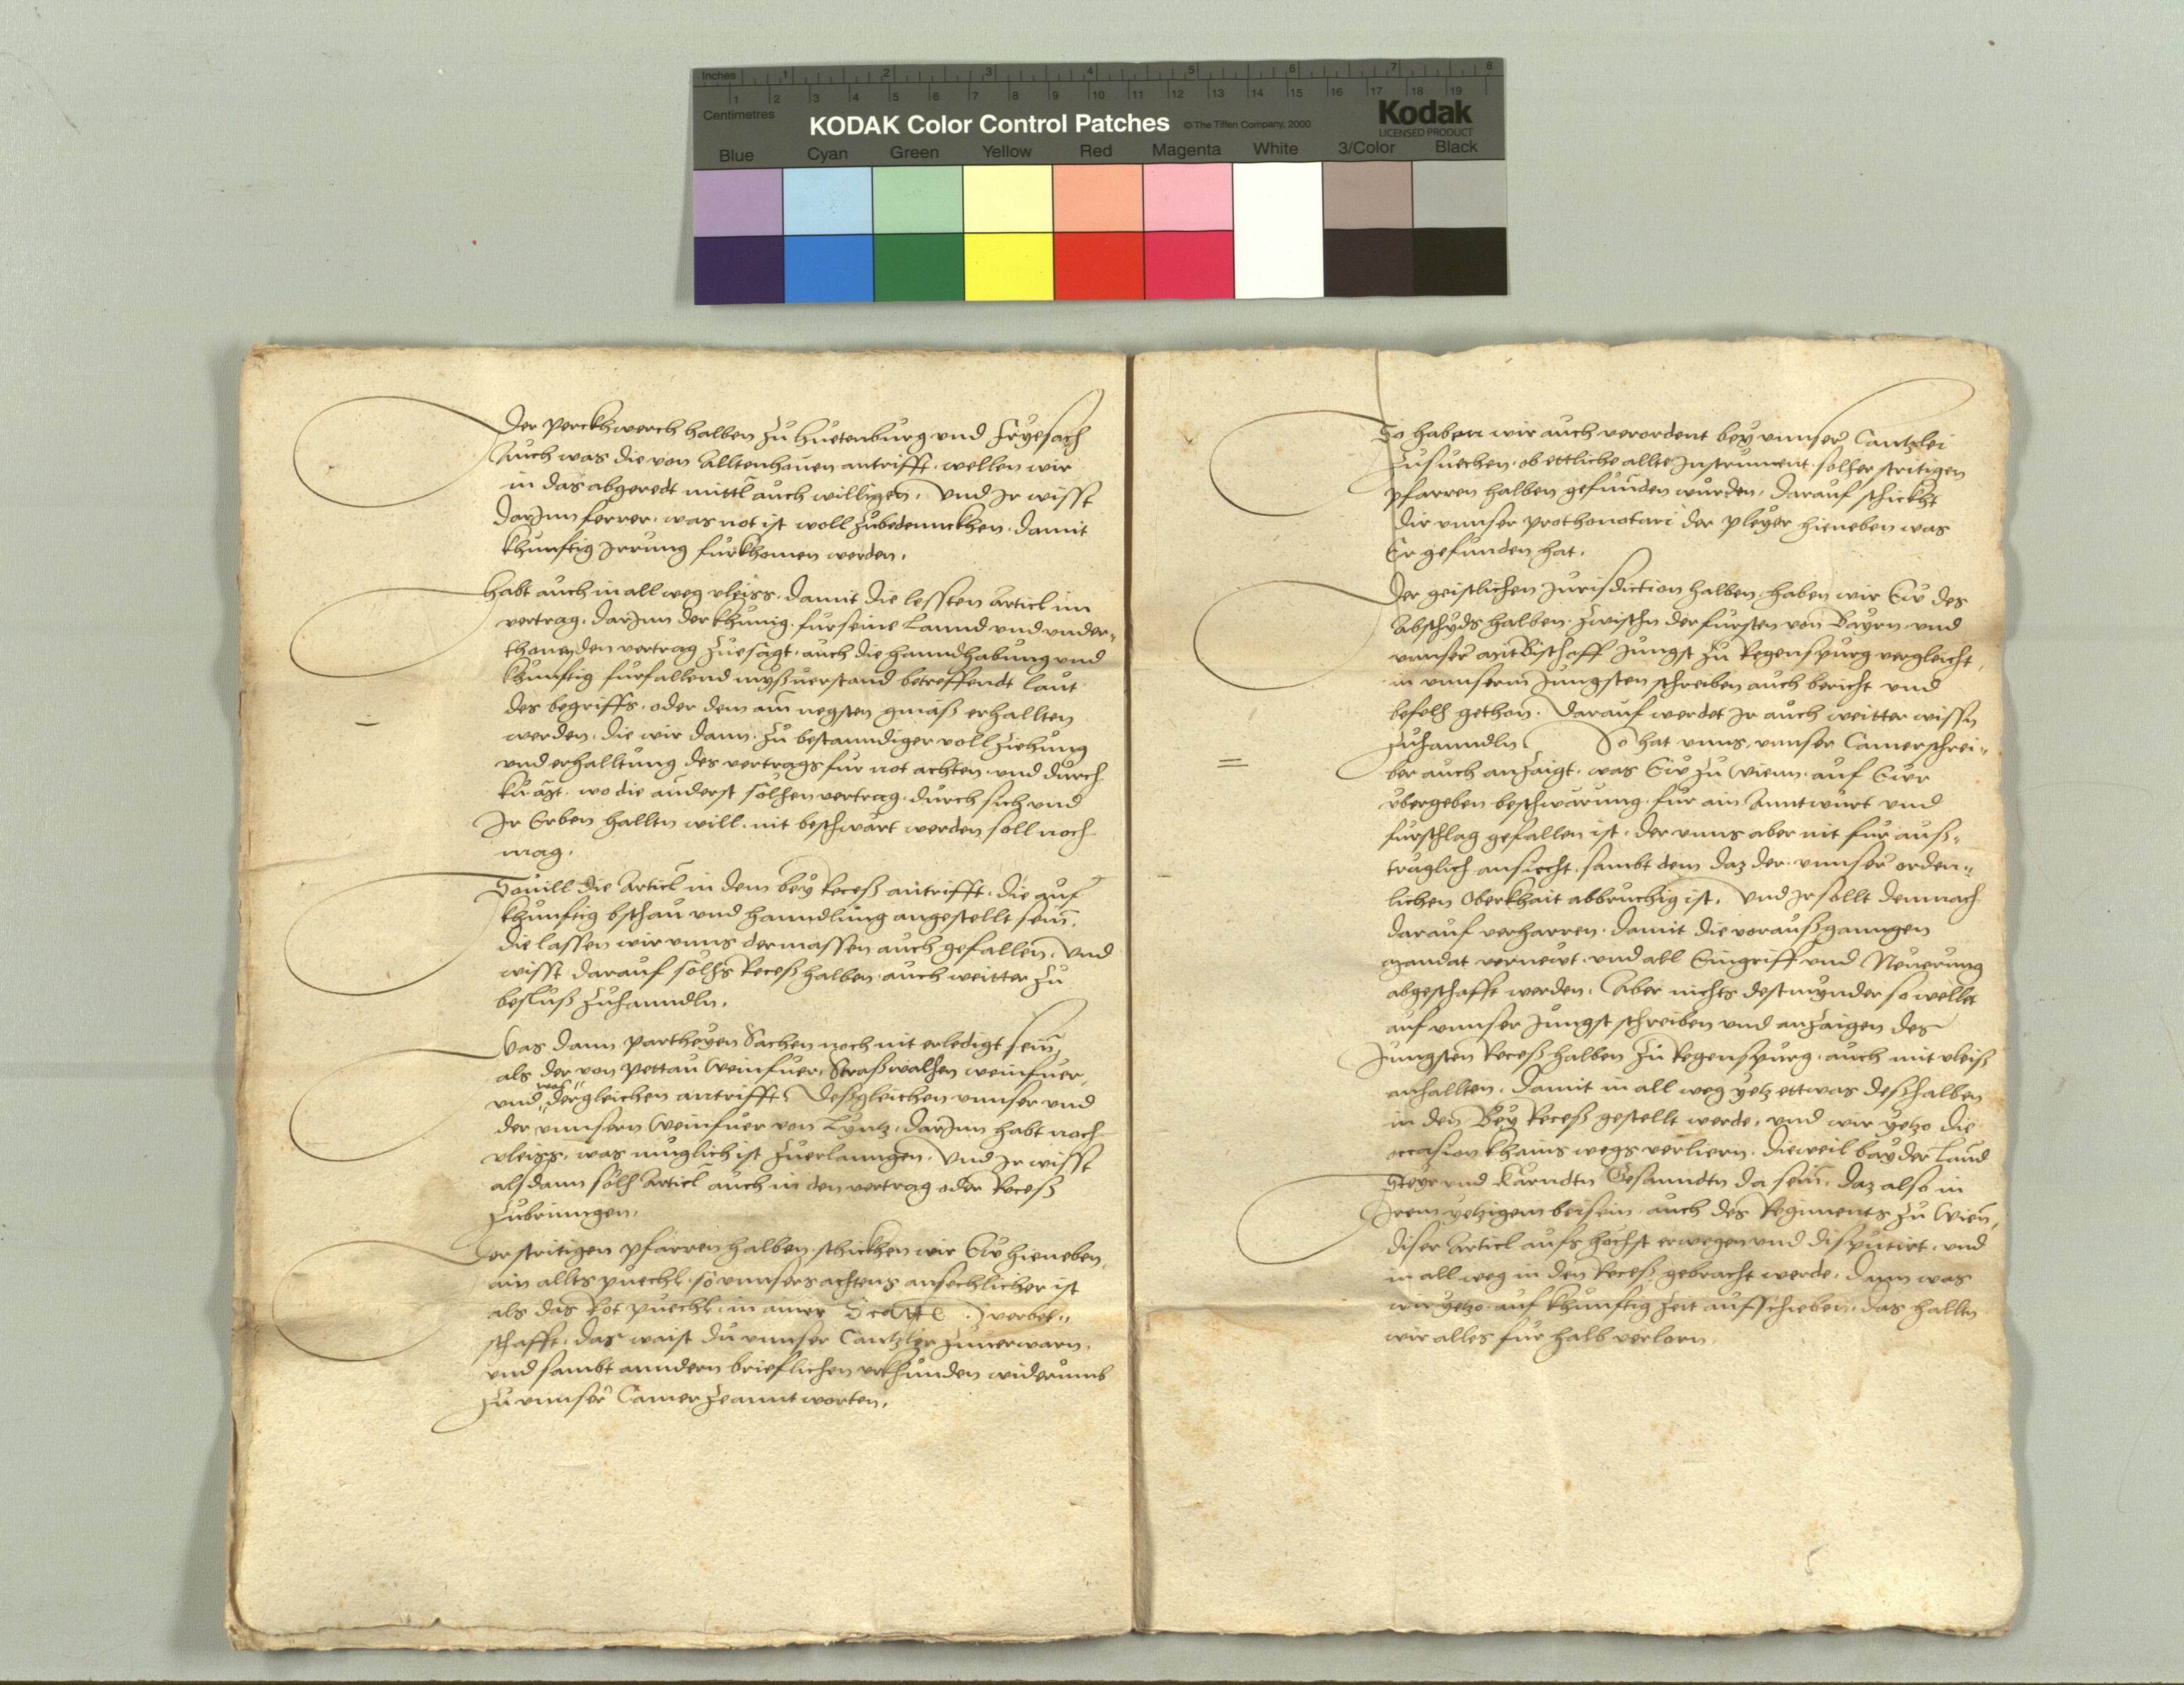 Inches 1 2 3 4 5 6 7 8
Centimetres 1 2 3 4 5 6 7 8 9 10 11 12 13 14 15 16 17 18 19
KODAK Color Control Patches © The Tiffen Company, 2000 Kodak
LICENSED PRODUCT
Blue Cyan Green Yellow Red Magenta White 3/Color Black
Der perckhwerch halben zu Huetenburg vnd Fryesach
Auch was die von Alltenhauen antrifft. wellen wir
in das abgeredt mittl auch willigen. Vnd Ir wisst
darInn ferrer. was not ist woll zubedennckhen. damit
khunftig Irrung furkhomen werden.
Habt auch in all weg vleiss. damit die lessten Articl im
vertrag. darInn der Khunig. fur seine Lannd vnd vnder-
thonen den vertrag zuesagt. auch die hanndhabung vnd
khunftig furfallend myssuerstand betreffendt laut
des begriffs. oder dem am negsten gmäß erhallten
werden. die wir dann. zu bestanndiger vollziehung
vnd erhalltung des vertrags fur not achten. vnd durch
wo die anderst solhen vertrag. durch sich vnd
Ir Erben halltn will. nit beschwärt werden soll noch
mag.
Souill die Articl in dem bey Receß antrifft. die auf
khunftig bschau vnd hanndlung angestellt sein.
die lassen wir vnns dermassen auch gefallen. Vnd
wisst darauf solhs Receß halben auch weitter zu
besluß zuhanndln.
Was dann partheyen Sachen noch nit erledigt sein,
als der von Pettau Weinfuer. Straßwalhen weinfuer,
was
vnd dergleichen antrifft. Deßgleichen vnnser vnd
der vnnsern Weinfuer von Lyntz. darInn habt noch
vleiss. was muglich ist zuerlanngen. Vnd Ir wisst
alsdann solh Articl auch in den vertrag oder Receß
zubringen.
Der stritigen pfarren halben schickhen wir Eu hieneben
ain allts puechl. so vnnsers achtens ansechlicher ist
als das Rot puechl. in ainer verbet-
schafft. das waist du vnnser Cantzler zuuerwarn.
vnd sambt anndern brieflichen vrkhunden widerumb
zu vnnser Camer zeanntworten.
So haben wir auch verordent bey vnnser Cantzlei
zusuechen. ob ettliche allte Instrument solher stritigen
pfarren halben gefunden wurden. darauf schickht
dir vnnser prothonotari der Pleyer hieneben was
Er gefunden hat.
Der geistlichen Jurisdiction halben. haben wir Eu des
Abschyds halben. zwischn der fursten von Bayrn vnd
vnnser mitBischoff Jungst zu Regenspurg vergleicht,
in vnnserm Jungsten schreiben auch bericht vnd
befelh gethon. Darauf werdet Ir auch weitter wissn
zuhanndln. So hat vnns. vnnser Camerschrei-
ber auch anzaigt. was Eu zu Wienn. auf Eur
vbergeben beschwärung. fur ain Anntwurt vnd
furschlag gefallen ist. der vnns aber nit fur auß-
träglich ansiecht. sambt dem daz der vnnser orden-
lichen Oberkhait abbruchig ist. Vnd Ir sollt demnach
darauf verharren. damit die voraußganngen
Mandat vernewt. vnd all Eingriff vnd Neuerung
abgeschafft werden. Aber nichts destmynder so wellet
auf vnnser Jungst schreiben vnd anzaigen des
Jungsten Receß halben zu Regenspurg. auch mit vleiß
anhallten. damit in all weg yetz ettwas deßhalben
in den Bey Receß gestellt werde. vnd wir yetzo die
occasion khains wegs verliern. dieweil bayder Lannd
Steyr vnd Kärndtn Gesanndtn da sein. daz also in
Irem yetzigem beisein. auch des Regiments zu Wien,
diser Articl aufs höchst erwegen vnd disputirt. vnd
in all weg in den Receß gebracht werde. dann was
wir yetzo. auf khunftig zeit aufschieben. das halltn
wir alles fur halb verlorn.